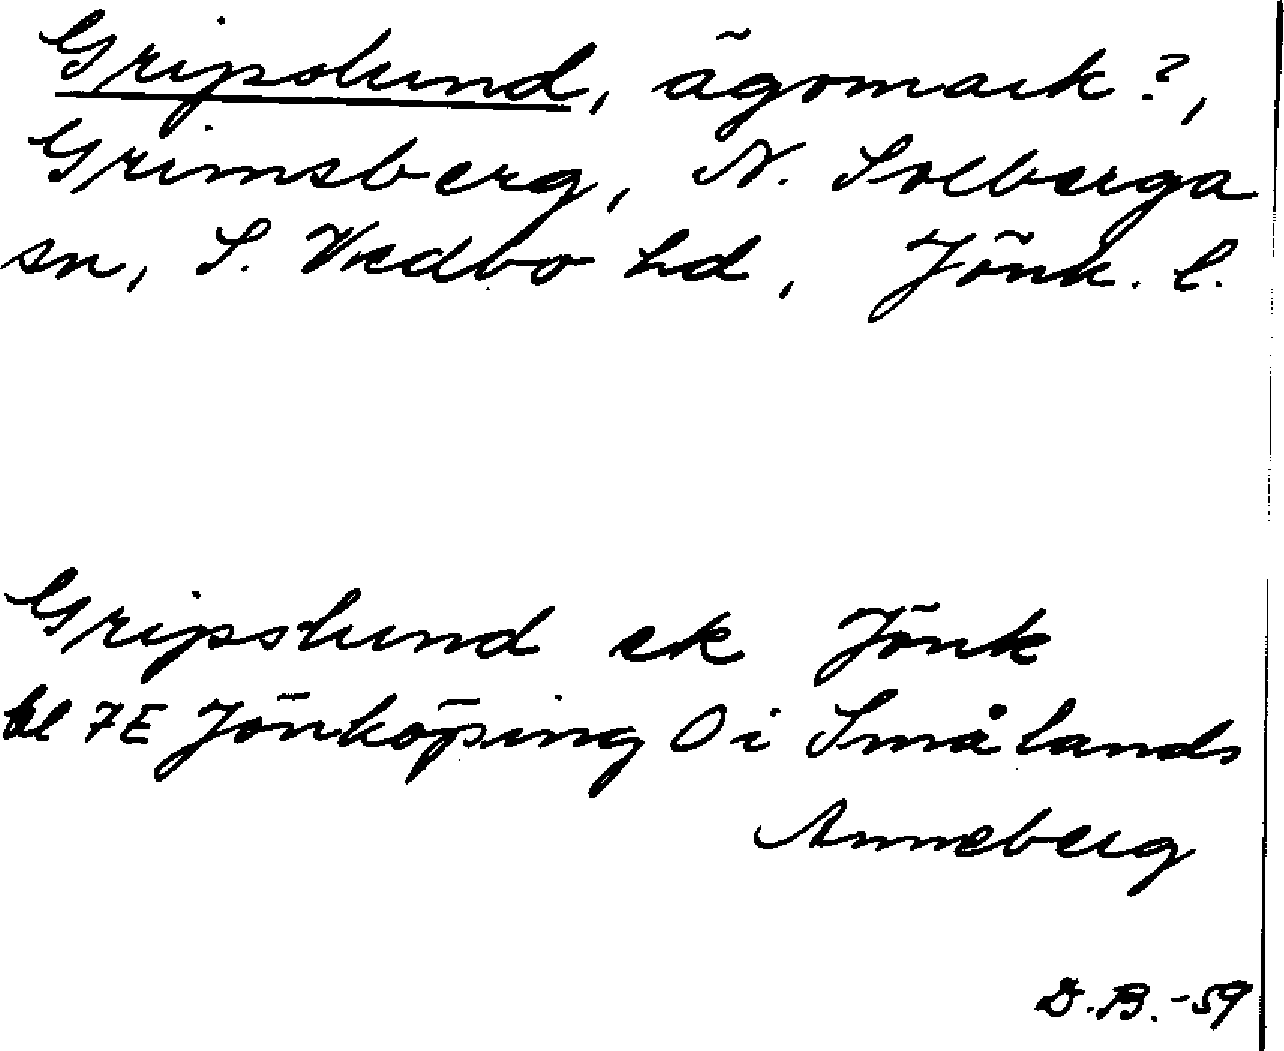 Gripslund, ägomark?,
Grimsberg, N. Solberga
sn, S. Vedbo hd, Jönk. l.
Gripslund ek Jönk
bl 7E Jönköping O i Smålands
Anneberg
D.B.-59